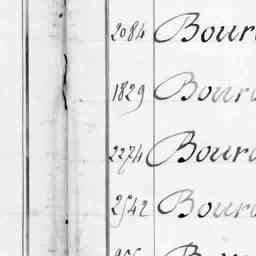 2084 Bour
1829 Bour
2274 Bour
2542 Bour